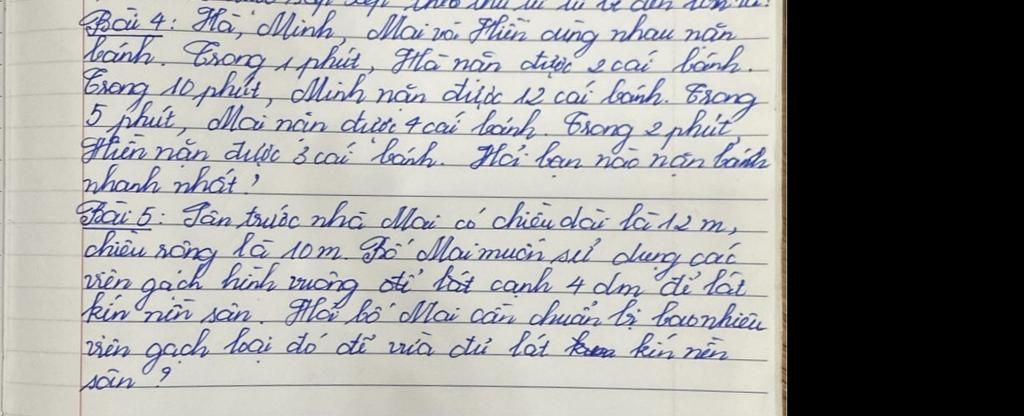 xếp theo thứ tự từ bé đến lớn là:
Bài 4: Hà, Minh, Mai và Hiền cùng nhau nặn
bánh. Trong 1 phút, Hà nặn được 2 cái bánh.
Trong 10 phút, Minh nặn được 12 cái bánh. Trong
5 phút, Mai nặn được 4 cái bánh. Trong 2 phút,
Hiền nặn được 3 cái bánh. Hỏi bạn nào nặn bánh
nhanh nhất?
Bài 5: Sân trước nhà Mai có chiều dài là 12 m,
chiều rộng là 10m. Bố Mai muốn sử dụng các
viên gạch hình vuông để lát cạnh 4 dm để lát
kín nền sân. Hỏi bố Mai cần chuẩn bị bao nhiêu
viên gạch loại đó để vừa đủ lát kín nền
sân?